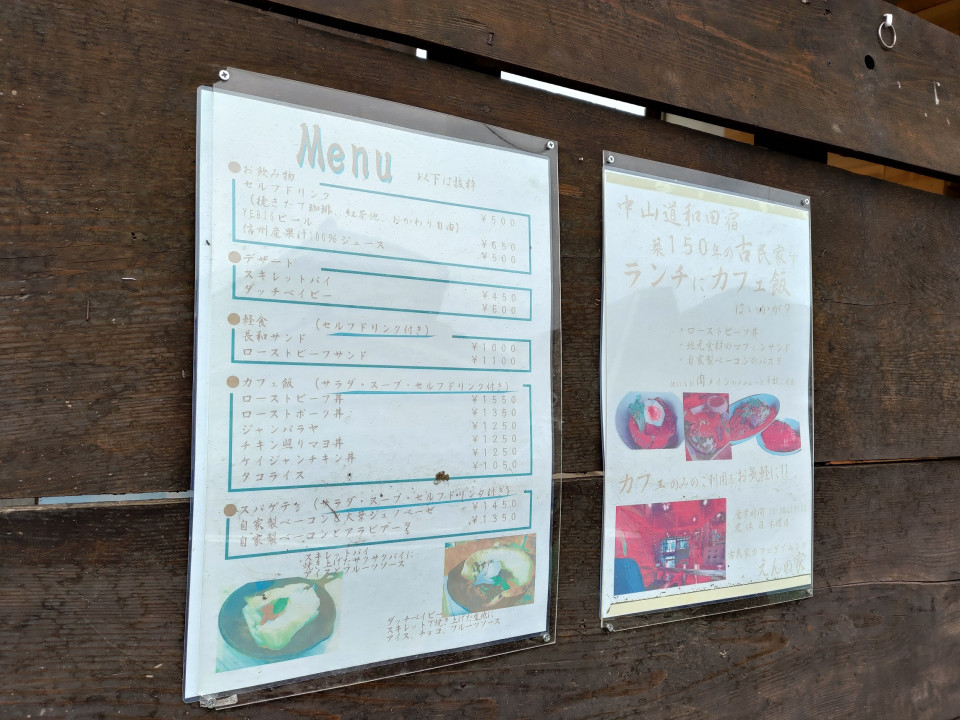 Menu
※以下は抜粋
●お飲み物
セルフドリンク ¥500
(挽きたて珈琲、紅茶他、おかわり自由)
YEBISビール ¥650
信州産果汁100%ジュース ¥500
●デザート
スキレットパイ ¥450
ダッチベイビー ¥500
●軽食 (セルフドリンク付き)
長和サンド ¥1000
ローストビーフサンド ¥1100
●カフェ飯 (サラダ・スープ・セルフドリンク付き)
ローストビーフ丼 ¥1550
ローストポーク丼 ¥1350
ジャンバラヤ ¥1250
チキン照りマヨ丼 ¥1250
ケイジャンチキン丼 ¥1250
タコライス ¥1050
●スパゲティ (サラダ・スープ・セルフドリンク付き)
自家製ベーコン&大葉ジェノベーゼ ¥1450
自家製ベーコンとアラビアータ ¥1350
スキレットパイ
焼き上げたサクサクパイに
アイスとフルーツソース
ダッチベイビー
スキレットで焼き上げた生地に
アイス、チョコ、フルーツソース
中山道和田宿
築150年の古民家で
ランチにカフェ飯
はいかが?
・ローストビーフ丼
・地元食材のマフィンサンド
・自家製ベーコンのパスタ
カフェのみのご利用もお気軽に!!
営業時間
定休日
えんの家